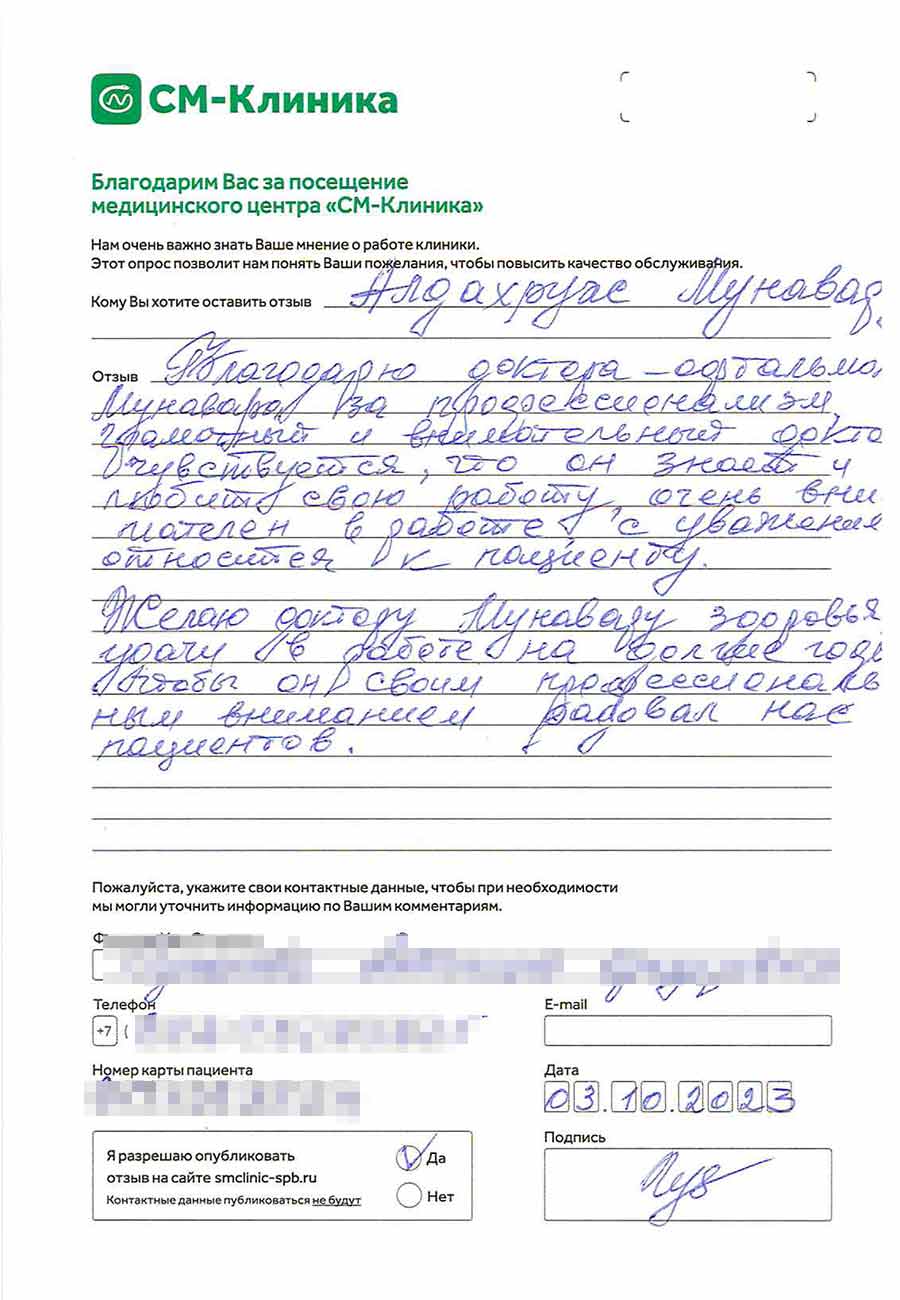 СМ-Клиника
Благодарим Вас за посещение
медицинского центра «СМ-Клиника»
Нам очень важно знать Ваше мнение о работе клиники.
Этот опрос позволит нам понять Ваши пожелания, чтобы повысить качество обслуживания.
Кому Вы хотите оставить отзыв Алдахруас Мунавар
Отзыв Благодарю доктора – офтальмо
Мунавара за профессионализм,
грамотный и внимательный докто
Чувствуется, что он знает и
любит свою работу, очень вни
мателен в работе, с уважения
относится к пациенту.
Желаю доктору Мунавару здоровья
удачи в работе на долгие годы
Чтобы он своим профессиональ
ным вниманием радовал нас
пациентов.
Пожалуйста, укажите свои контактные данные, чтобы при необходимости
мы могли уточнить информацию по Вашим комментариям.
Телефон
E-mail
+7 (
Номер карты пациента
Дата
03.10.2023
Я разрешаю опубликовать
отзыв на сайте smclinic-spb.ru
Контактные данные публиковаться не будут
Да
Нет
Подпись